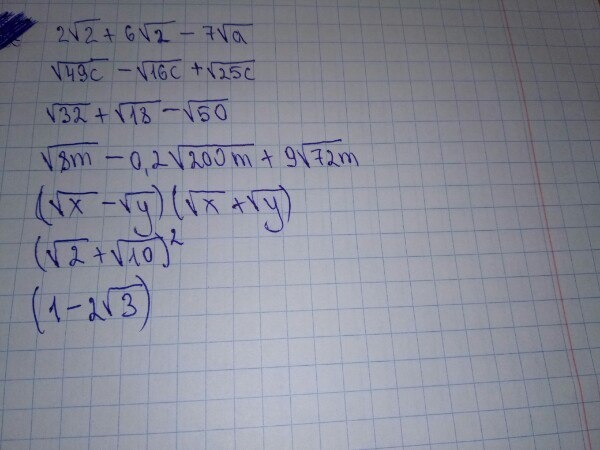 2√2 + 6√2 - 7√a
√49c - √16c + √25c
√32 + √18 - √50
√8m - 0,2√200m + 9√72m
(√x - √y)(√x + √y)
(√2 + √10)²
(1 - 2√3)